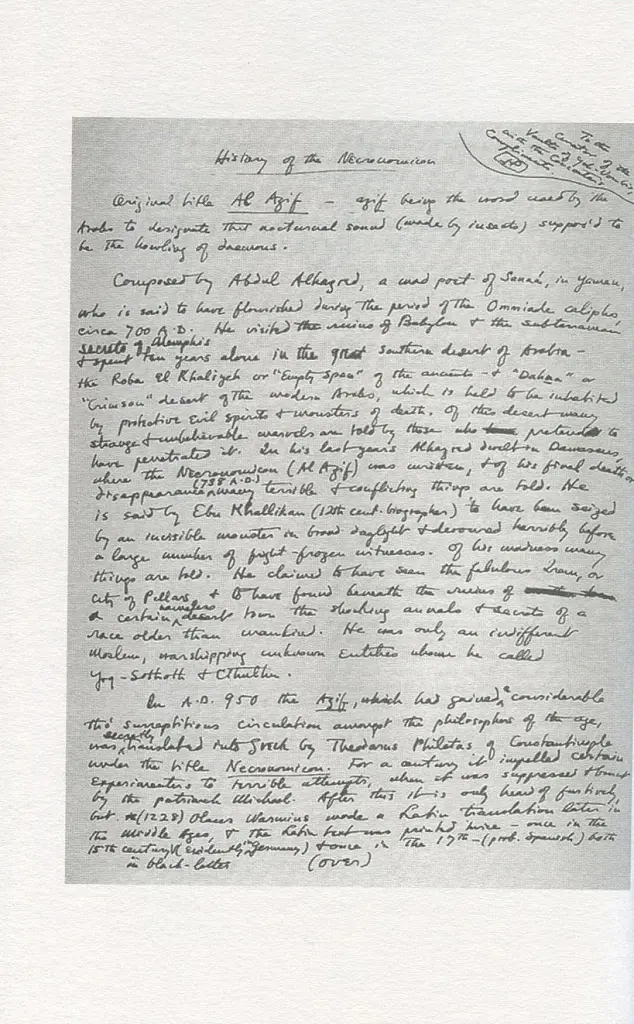 To the
Curator of the
Vaults of Yoh-Vombis
with the Concocter's
Compliments
History of the Necronomicon
Original title Al Azif — azif being the word used by the
Arabs to designate that nocturnal sound (made by insects) suppos'd to
be the howling of daemons.
Composed by Abdul Alhazred, a mad poet of Sanaá, in Yemen,
who is said to have flourished during the period of the Ommiade caliphs
circa 700 A.D. He visited the ruins of Babylon & the subterranean
secrets of Memphis
& spent ten years alone in the great southern desert of Arabia —
the Roba El Khaliyeh or "Empty Space" of the ancients — & "Dahna" or
"Crimson" desert of the modern Arabs, which is held to be inhabited
by protective evil spirits & monsters of death. Of this desert many
strange & unbelievable marvels are told by those who pretend to
have penetrated it. In his last years Alhazred dwelt in Damascus,
where the Necronomicon (Al Azif) was written, & of his final death or
disappearance (738 A.D.) many terrible & conflicting things are told. He
is said by Ebn Khallikan (12th cent. biographer) to have been seized
by an invisible monster in broad daylight & devoured horribly before
a large number of fright-frozen witnesses. Of his madness many
things are told. He claimed to have seen the fabulous Irem, or
City of Pillars, & to have found beneath the ruins of
a certain nameless desert town the shocking annals & secrets of a
race older than mankind. He was only an indifferent
Moslem, worshipping unknown Entities whom he called
Yog-Sothoth & Cthulhu.
In A.D. 950 the Azif, which had gained a considerable
tho' surreptitious circulation amongst the philosophers of the age,
was secretly translated into Greek by Theodorus Philetas of Constantinople
under the title Necronomicon. For a century it impelled certain
experimenters to terrible attempts, when it was suppressed & burnt
by the patriarch Michael. After this it is only heard of furtively,
but (1228) Olaus Wormius made a Latin translation later in
the Middle Ages, & the Latin text was printed twice — once in the
15th century (evidently in Germany) & once in the 17th — (prob. Spanish) both
in black-letter
(over)